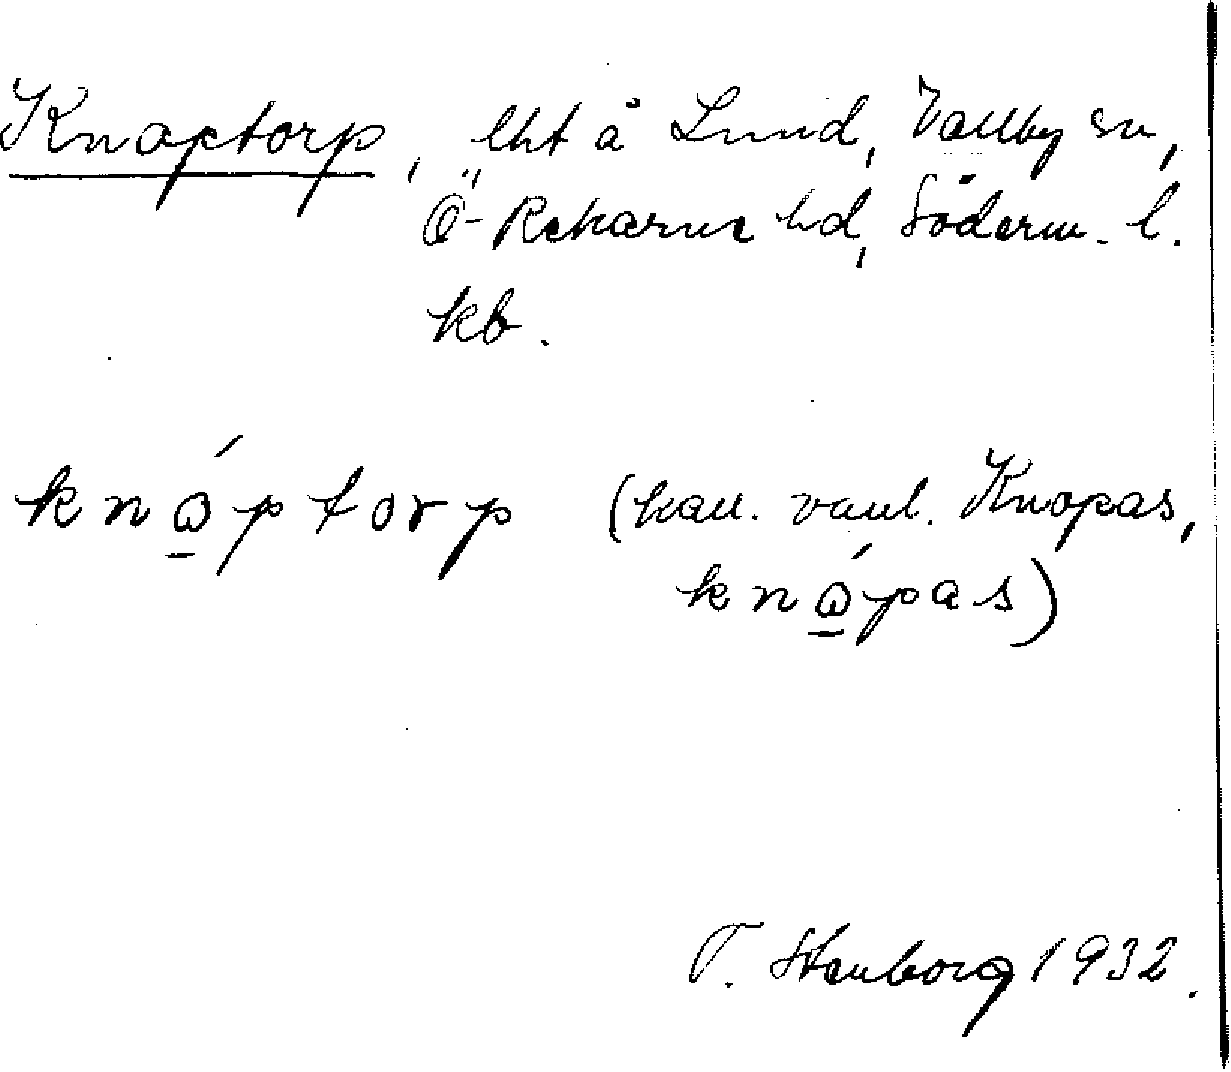 Knaptorp, lht å Lund, Vallby sn,
Ö-Rekarne hd, Söderm. l.
kb.
knǫ́ptorp (kall. vanl. Knopas,
knǫ́pas)
T. Stenborg 1932.